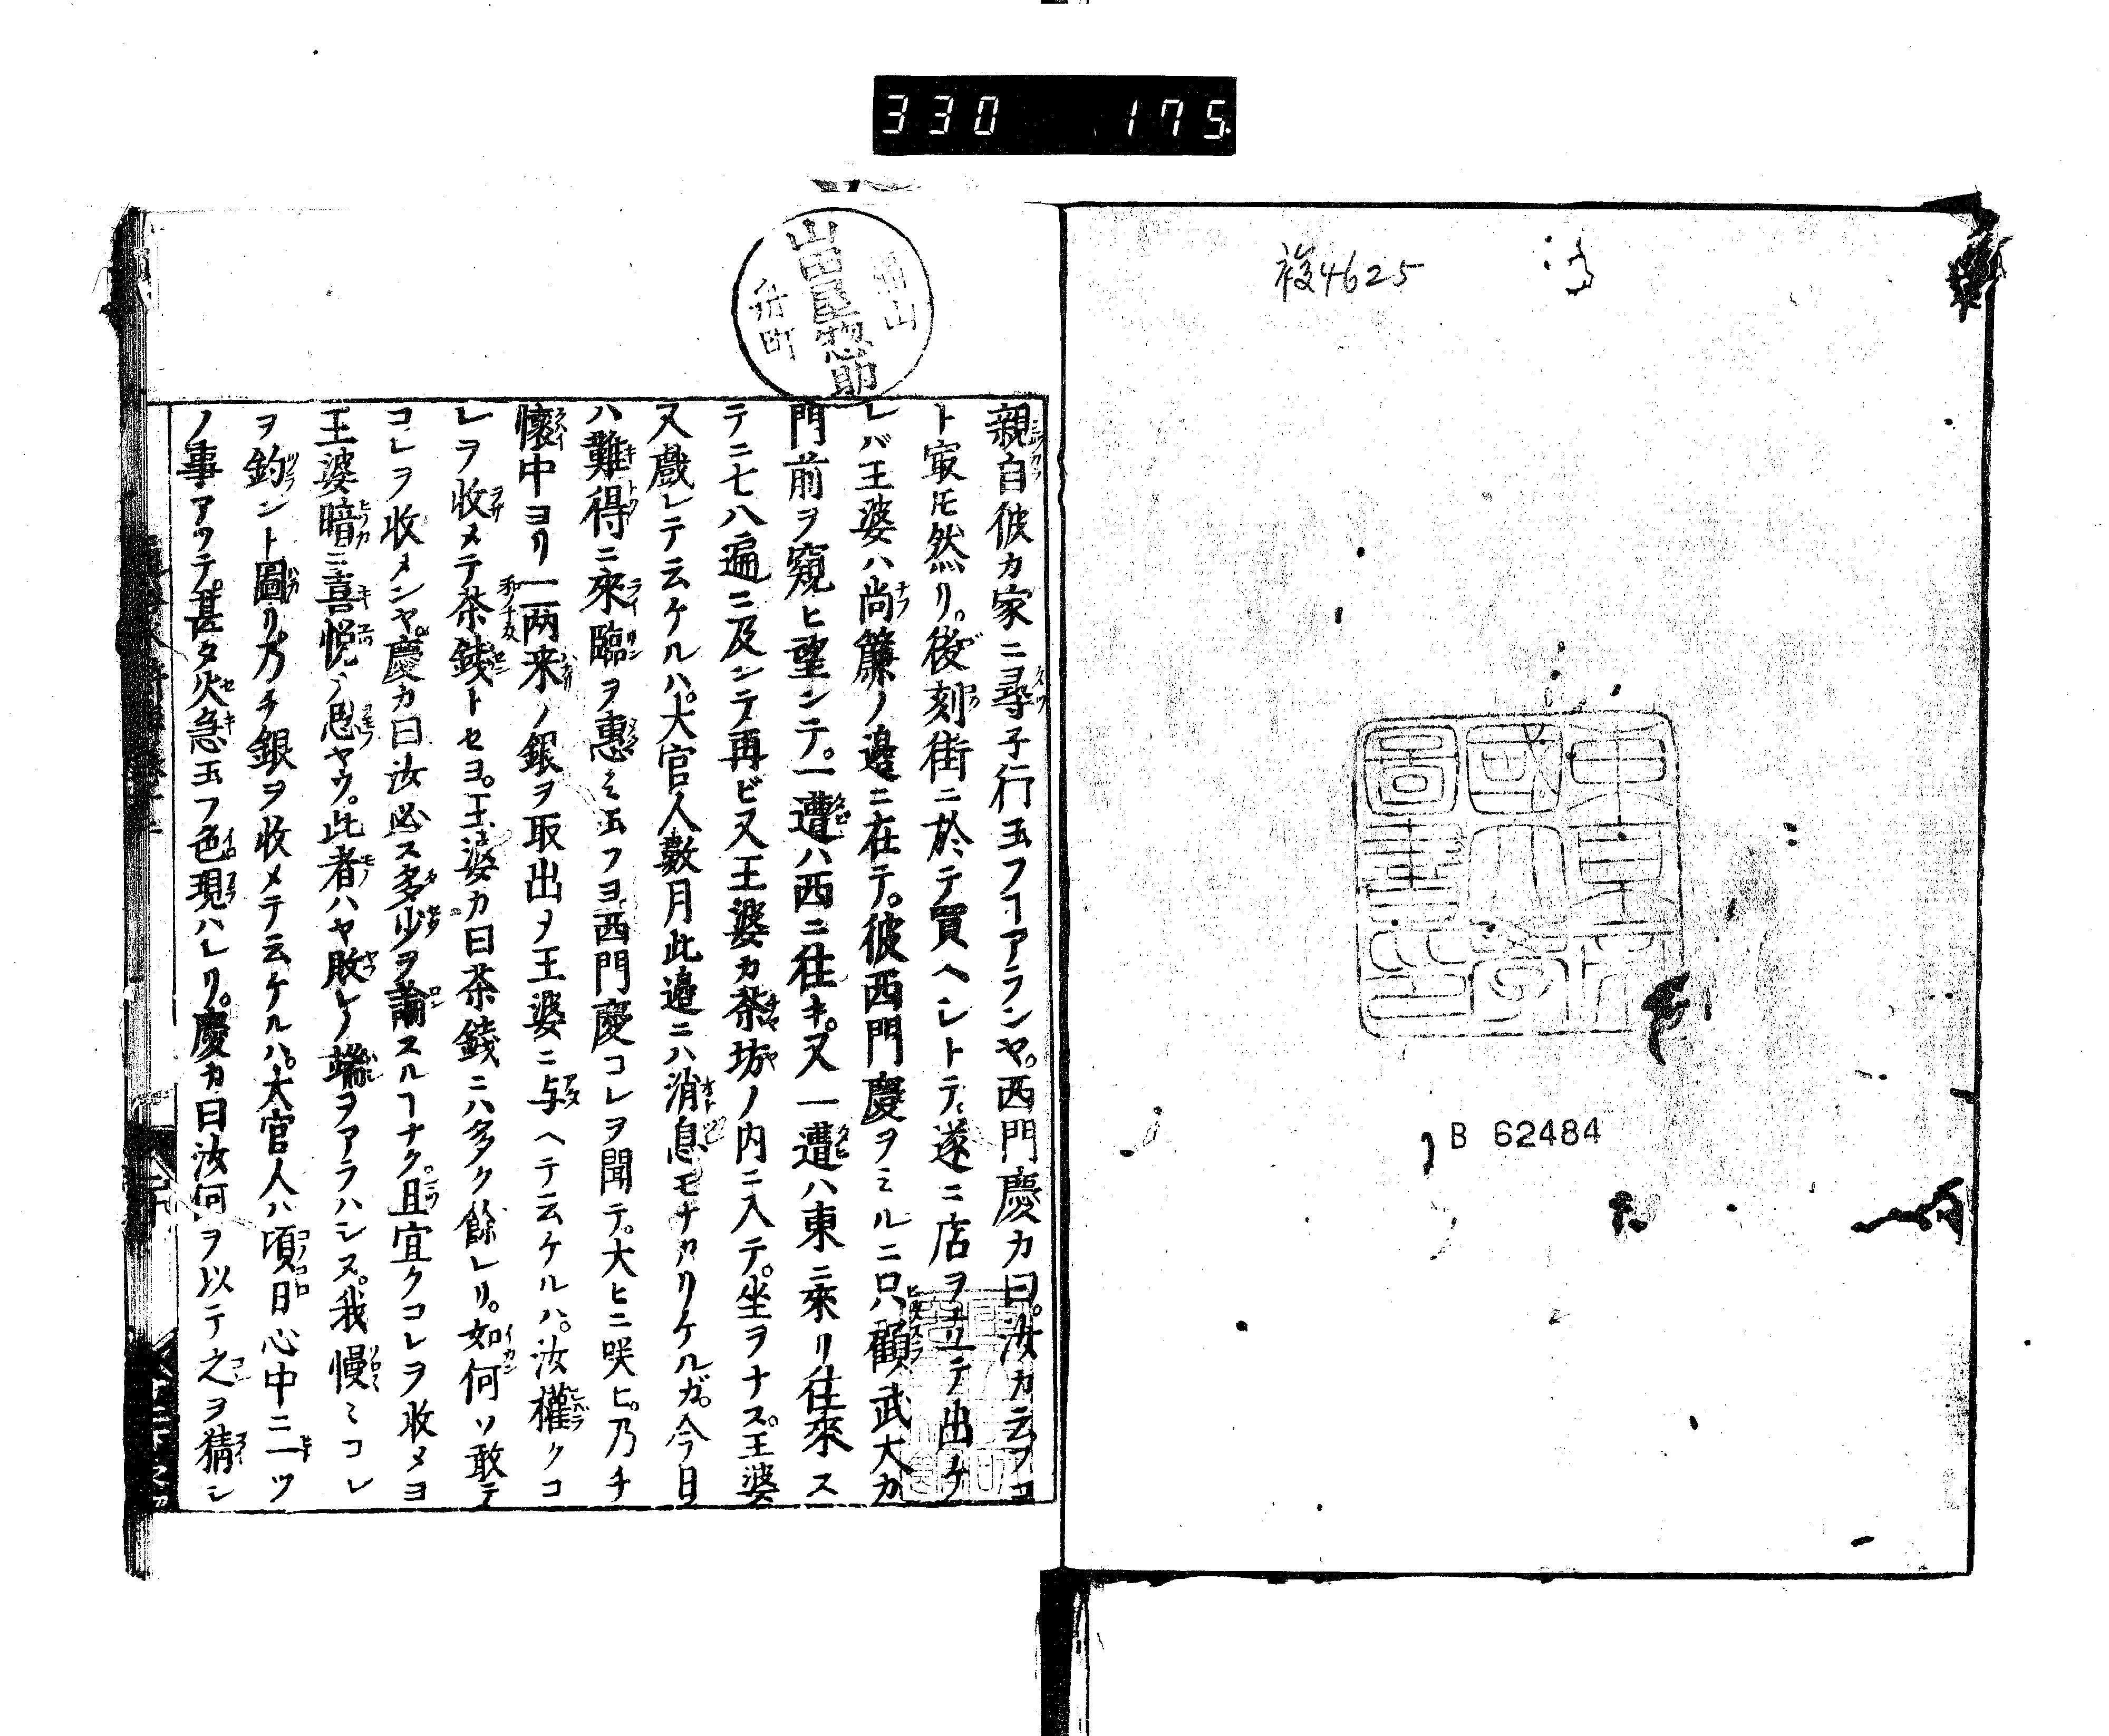 330 175
複4625
東京帝國大學圖書印
B 62484
山田屋惣助
舟町
親自彼カ家ニ尋子行玉フヿアランヤ。西門慶カ曰。汝カ云フコ
ト寂モ然リ。後刻街ニ於テ買ヘシトテ遂ニ店ヲ立テ出ケ
レバ王婆ハ尚簾ノ邊ニ在テ。彼西門慶ヲミルニ只顧武大カ
門前ヲ窺ヒ望ンテ。一遭ハ西ニ往キ。又一遭ハ東ニ來リ往來ス
テニ七八遍ニ及ンテ再ビ又王婆カ茶坊ノ内ニ入テ。坐ヲナス。王婆
又戯レテ云ケルハ。大官人數月此邉ニハ消息モナカリケルガ。今日
ハ難得ニ來臨ヲ惠ミ玉フヨ西門慶コレヲ聞テ。大ヒニ咲ヒ。乃チ
懷中ヨリ一両来ノ銀ヲ取出ノ王婆ニ与ヘテ云ケルハ。汝權クコ
レヲ收メテ茶錢トセヨ。王婆カ曰茶錢ニハ多ク餘レリ。如何ソ敢テ
コレヲ收メンヤ。慶カ曰汝必ス多少ヲ論スルヿナク。且宜クコレヲ收メヨ
王婆暗ニ喜悦ノ思ヤウ。此者ハヤ敗レノ端ヲアラハシヌ。我慢ミコレ
ヲ釣ント圖リ。乃チ銀ヲ收メテ云ケルハ。大官人ハ頃日心中ニ一ツ
ノ事アツテ。甚タ火急玉フ色現ハレリ。慶カ曰汝何ヲ以テ之ヲ猜シ